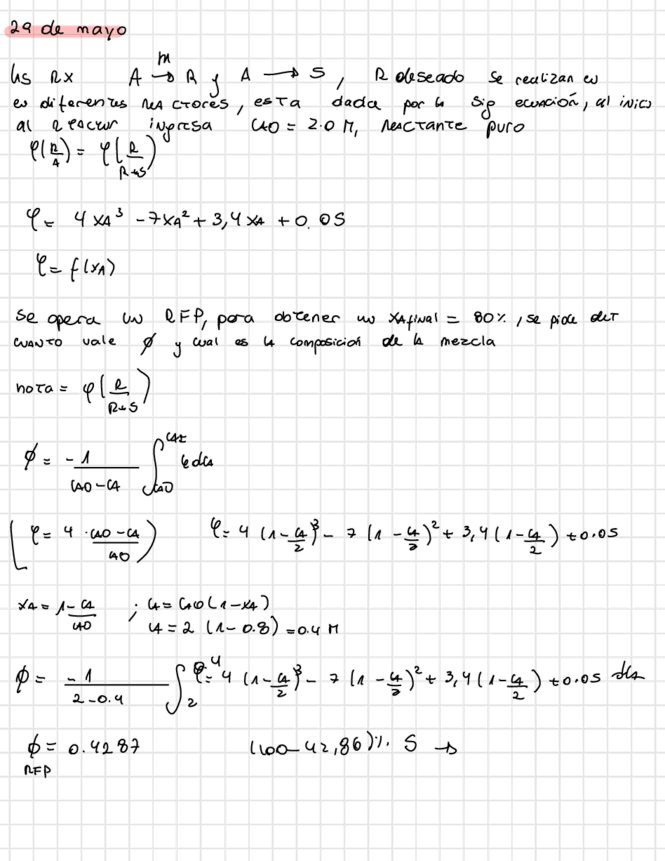 29 de mayo
las Rx A →(m) R y A → S, R deseado se realizan en
en diferentes reactores, esta dada por la sig ecuación, al inicio
al reactor ingresa CAO = 2.0 M, reactante puro
φ(R/A) = φ(R/R+S)
φ = 4 XA³ - 7XA² + 3,4 XA + 0.05
φ = f(XA)
se opera un RFP, para obtener un XA final = 80%, se pide det
cuanto vale ϕ y cual es la composición de la mezcla
nota = φ(R/R+S)
ϕ = -1/(CAO-CA) ∫CAO^CAF φ dCA
[φ = 4 · (CAO-CA)/CAO) φ = 4 (1-CA/2)³ - 7 (1 - CA/2)² + 3,4 (1-CA/2) + 0.05
XA = 1-CA/CAO ; CA = CAO (1-XA)
CA = 2 (1-0.8) = 0.4 M
ϕ = -1/(2-0.4) ∫2^0.4 φ= 4 (1-CA/2)³ - 7 (1 - CA/2)² + 3,4 (1-CA/2) + 0.05 dCA
ϕ = 0.4287 (100-42,86)% S →
RFP